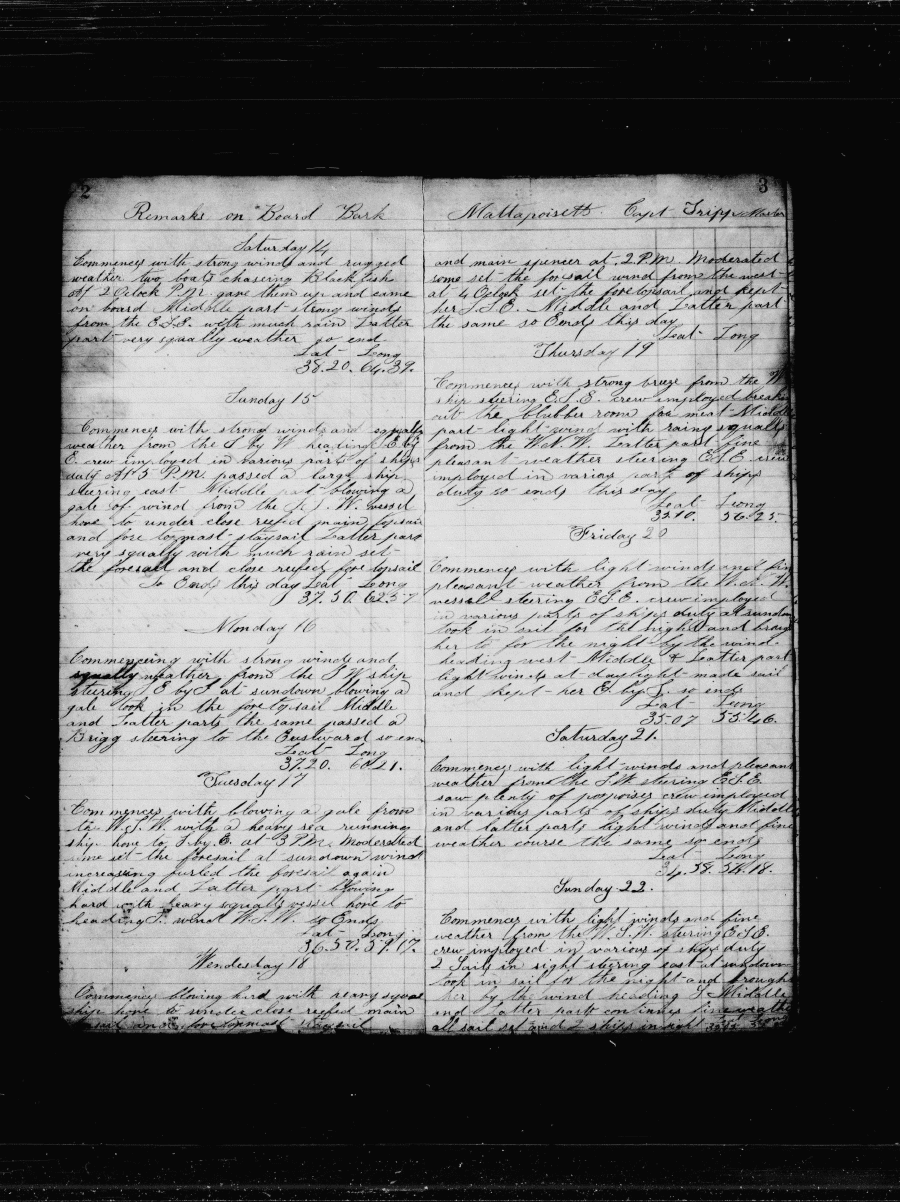 2
Remarks on Board Bark
Saturday 14
Commences with strong winds and rugged
weather two boats chasing Black fish
At 2 Oclock P.M. gave them up and came
on board Middle part strong winds
from the E.S.E. with much rain Latter
part very squally weather so end
Lat Long
38.20. 64.39.
Sunday 15
Commences with strong winds and squally
weather from the S by W heading E by
E. crew imployed in various parts of ships
duty At 5 P.M. passed a large ship
steering east Middle part blowing a
gale of wind from the W. vessel
hove to under close reefed main topsail
and fore topmast staysail Latter part
very squally with much rain set
the foresail and close reefed fore topsail
So Ends this day Lat Long
37.50. 62.57
Monday 16
Commenceing with strong winds and
squally weather from the S W ship
steering E by S at sundown blowing a
gale took in the foretopsail Middle
and Latter parts the same passed a
Brigg steering to the Eastward so en
Lat Long
37.20. 60.21.
Tuesday 17
Commences with blowing a gale from
the W.S.W. with a heavy sea running
ship hove to S. by. E. at 3 P.M. Moderated
some set the foresail at sundown wind
increasing furled the foresail again
Middle and Latter part blowing
hard with heavy squalls vessel hove to
heading S. wind W.S.W. so Ends
Lat Long
36.50. 59.17.
Wendesday 18
Commences blowing hard with heavy squal
ship hove to under close reefed main
topsail and fore topmast staysail
3
Mattapoisett. Capt Tripp Master
and main spencer at 2 P.M. Moderated
some set the foresail wind from the west
at 4 Oclock set the foretopsail and kept
her S.S.E. Middle and Latter part
the same so Ends this day
Lat Long
Thursday 19
Commences with strong breze from the W
ship steering E.S.E. crew imployed break
out the blubber room for meat Middle
part light wind with rainy squalls
from the W.N.W. Latter part fine
pleasant weather steering E.S.E. crew
imployed in various part of ships
duty so ends this day
Lat Long
35.10. 56.25.
Friday 20
Commences with light winds and fine
pleasant weather from the W.N.W.
vessell steering E.S.E. crew imployed
in various parts of ships duty at sundown
took in sail for the night and braug
her to for the night by the wind
heading west Middle & Latter part
light winds at daylight made sail
and kept her E. by S. so ends
Lat Long
35-07 55.46.
Saturday 21.
Commences with light winds and pleasant
weather from the S.W. steering E.S.E.
saw plenty of porpoises crew imployed
in various parts of ships duty Middle
and latter parts light winds and fine
weather course the same so ends
Lat Long
34.58. 54.18.
Sunday 22.
Commences with light winds and fine
weather from the W.S.W. steering E.S.E.
crew imployed in various of ships duty
2 Sails in sight steering east at sundown
took in sail for the night and brough
her by the wind heading S. Middle
and latter part continues fine weather
all sail set and 2 ships in sight Lat Long